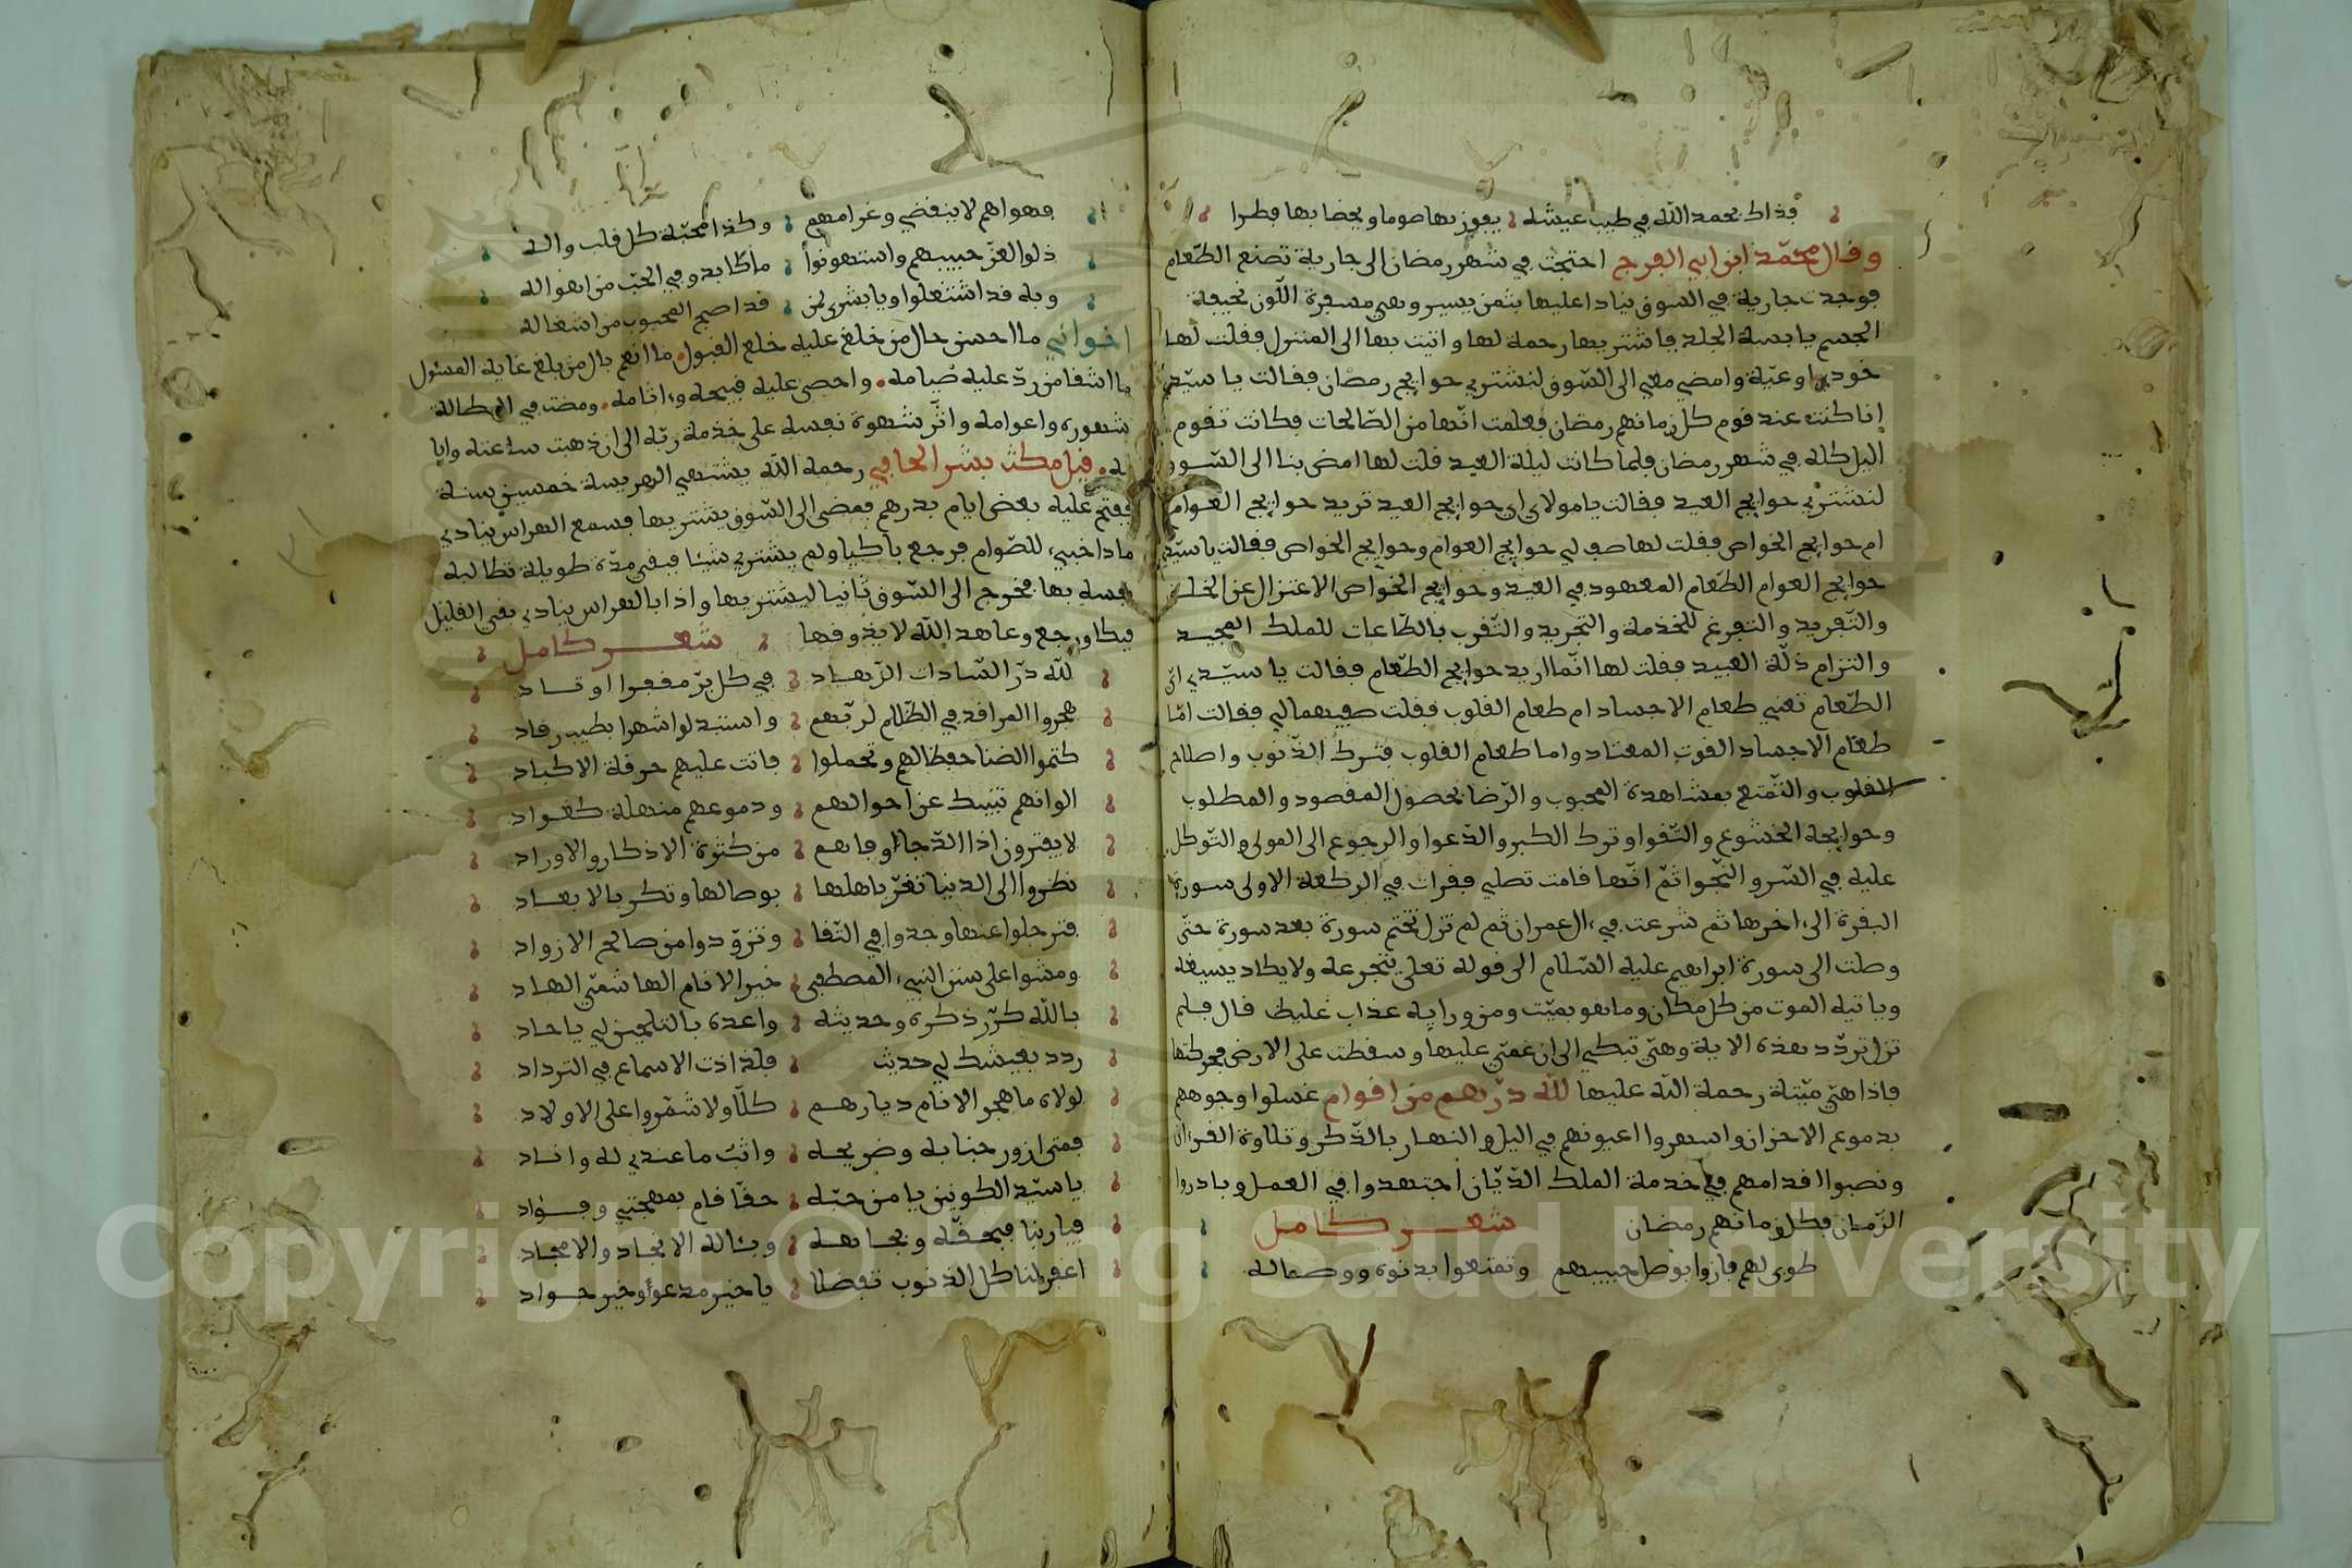 فذاك بحمد الله في طيب عيشه يفوز بها صوما ويحضا بها فطرا
وقال محمّد ابن ابي الفرج احتجت في شهر رمضان الى جارية تصنع الطّعام
فوجدت جارية في السوق ينادا عليها بثمن يسير وهي مصفرة اللّون نحيفة
الجسم يابسة الجلد فاشتريتها رحمة لها واتيت بها الى المنزل فقلت لها
خودي اوعيّة وامضي معي الى السّوق لنشتري حوايج رمضان فقالت يا سيّدي
انا كنت عند قوم كل زمانهم رمضان فعلمت انّها من الصّالحات فكانت تقوم
اليل كله في شهر رمضان فلما كانت ليلة العيد قلت لها امض بنا الى السّوق
لنشتري حوايج العيد فقالت يامولاي اي حوايج العيد تريد حوايج العوام
ام حوايج الخواص فقلت لها صفِ لي حوايج العوام وحوايج الخواص فقالت ياسيّدي
حوايج العوام الطّعام المعهود في العيد وحوايج الخواص الاعتزال عن الخلق
والتّفريد والتفرغ للخدمة والتجريد والتّقرب بالطّاعات للملك المجيد
والتزام ذلّة العبيد فقلت لها انّما اريد حوايج الطّعام فقالت يا سيّدي ايّ
الطّعام تعني طعام الاجساد ام طعام القلوب فقلت صفيهما لي فقالت امّا
طعام الاجساد القوت المعتاد واما طعام القلوب فترك الذّنوب واصلاح
القلوب والتّمتع بمشاهدة المحبوب والرّضا بحصول المقصود والمطلوب
وحوايجه الخشوع والتّقوا وترك الكبر والدّعوا والرجوع الى المولى والتّوكل
عليه في السّر والنّجوا ثمّ انّها قامت تصلي فقرات في الركعة الاولى سورة
البقرة الى اخرها ثم شرعت في ءال عمران ثم لم تزل تختم سورة بعد سورة حتّى
وصلت الى سورة ابراهيم عليه السّلام الى قوله تعلى يتجرعه ولايكاد يسيغه
وياتيه الموت من كل مكان وماهو بميّت ومن ورايه عذاب غليظ قال فلم
تزل تردّد هذه الاية وهيّ تبكي الى ان غمّي عليها وسقطت على الارض فحركتها
فاذا هيّ ميّتة رحمة الله عليها لله درّهم من اقوام غسلوا وجوههم
بدموع الاحزان واسهروا اعيونهم في اليل والنهار بالذّكر وتلاوة القرءان
ونصبوا اقدامهم في خدمة الملك الدّيّان اجتهدوا في العمل وبادروا
الزّمان فكل زمانهم رمضان شعر كامل
طوبى لهم فازوا بوصل حبيبهم وتمتعوا بدنوه ووصاله
فهواهم لاينقضي وغرامهم وكذا محبّة كل قلب واله
ذلوا لعزّ حبيبهم واستهونوا ماكابدو في الحبّ من اهواله
وبه قد اشتغلوا ويا بشرى لمن قد اصبح المحبوب من اشغاله
اخواني ما احسن حال من خلع عليه خلع القبول ما انعم بال من بلغ غاية المسئول
ما اشقا من ردّ عليه صيامه واحصى عليه قبيحه وءاثامه ومضت في البطالة
شهوره واعوامه واثر شهوة نفسه على خدمة ربّه الى ان ذهبت ساعته وايا
مه قيل مكث بشر الحافي رحمه الله يشتهي الهريسة خمسين سنة
ففتح عليه بعض ايام بدرهم فمضى الى السّوق يشتريها فسمع الهراس ينادي
ماذا خبيء للصّوام فرجع باكيا ولم يشتري شيئا فبقي مدّة طويلة تطالبه
نفسه بها فخرج الى السّوق ثانيا ليشتريها واذا بالهراس ينادي بقي القليل
فبكا ورجع وعاهد الله لا يذوقها شعر كامل
لله درّ السّادات الزّهاد في كل برّ مقفرا اوناد
هجروا المراقد في الظّلام لربّهم واستبدلوا سهرا بطيب رقاد
كتموا الضنا حفظا لهم وتحملوا فاتت عليهم حرقة الاكباد
الوانهم تنبيك عن احوالهم ودموعهم منهلة كغواد
لايفترون اذا الدّجا اوفاهم من كثرة الاذكار والاوراد
نظروا الى الدنيا تغرّ باهلها بوصالها وتكر بالابعاد
فترحلوا عنها وجدوا في التّقا وتزوّدوا من صالح الازواد
ومشوا على سنن النبيء المصطفى خير الانام الهاشميّ الهاد
بالله كرّر ذكره وحديثه واعده بالتلحين لي ياحاد
ردد بعيشك لي حديث فلذاذت الاسماع في الترداد
لولاه ماهجر الانام ديارهم كلّا ولا شمّروا على الاولاد
فمتى ازور جنابه وضريحه واثبّ ماعندي له وانــاد
ياسيّد الكونين يا من حبّه حقّا قام بمهجتي وفــؤاد
فياربنا فبحقّه وبجاهه وبئاله الانجاد والامجاد
اغفر لنا كل الذنوب تفضلا ياخير مدعوا وخير جــواد
Copyright © King Saud University